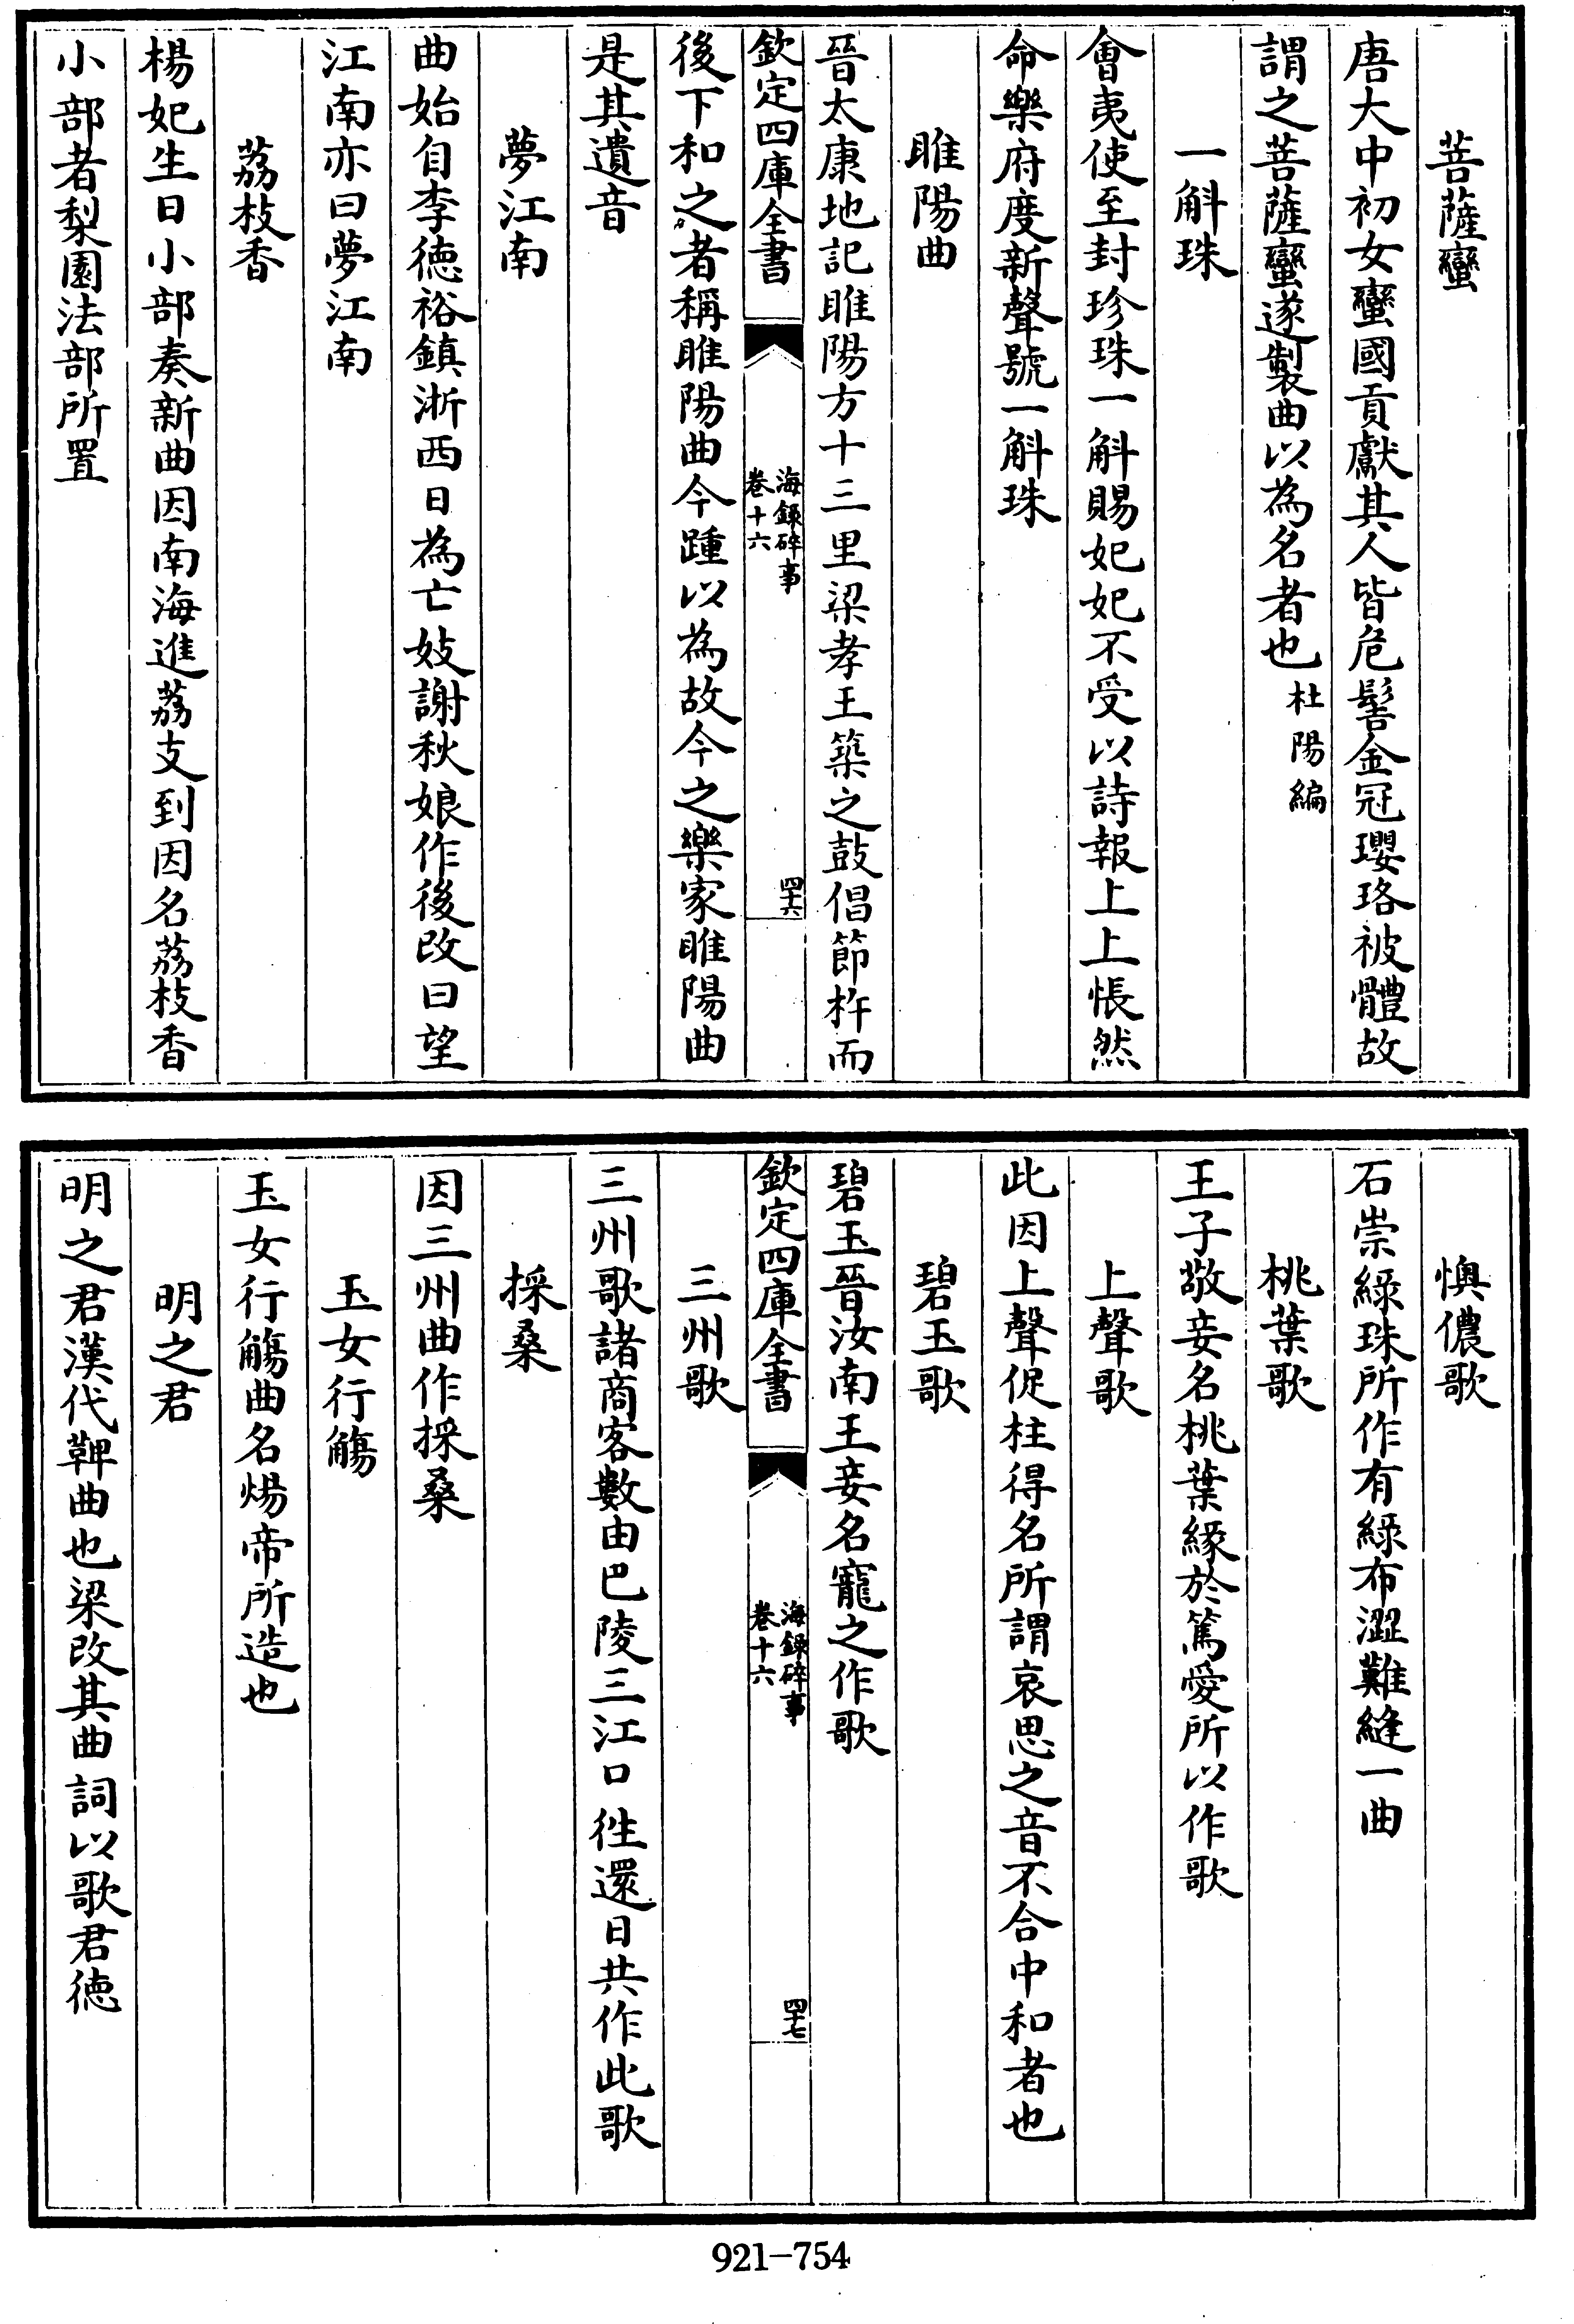 菩薩蠻
唐大中初女蠻國貢獻其人皆危髻金冠瓔珞被體故
謂之菩薩蠻遂製曲以為名者也杜陽編
一斛珠
會夷使至封珍珠一斛賜妃妃不受以詩報上上悵然
命樂府度新聲號一斛珠
睢陽曲
晉太康地記睢陽方十三里梁孝王築之鼓倡節杵而
欽定四庫全書
海錄碎事
卷十六
四十六
後下和之者稱睢陽曲今踵以為故今之樂家睢陽曲
是其遺音
夢江南
曲始自李徳裕鎮淅西日為亡妓謝秋娘作後改曰望
江南亦曰夢江南
荔枝香
楊妃生日小部奏新曲因南海進荔支到因名荔枝香
小部者梨園法部所置
懊儂歌
石崇緑珠所作有緑布澀難縫一曲
桃葉歌
王子敬妾名桃葉緣於篤愛所以作歌
上聲歌
此因上聲促柱得名所謂哀思之音不合中和者也
碧玉歌
碧玉晉汝南王妾名寵之作歌
欽定四庫全書
海錄碎事
卷十六
四十七
三州歌
三州歌諸商客數由巴陵三江口徃還日共作此歌
採桑
因三州曲作採桑
玉女行觴
玉女行觴曲名煬帝所造也
明之君
明之君漢代鞞曲也梁改其曲詞以歌君徳
921-754